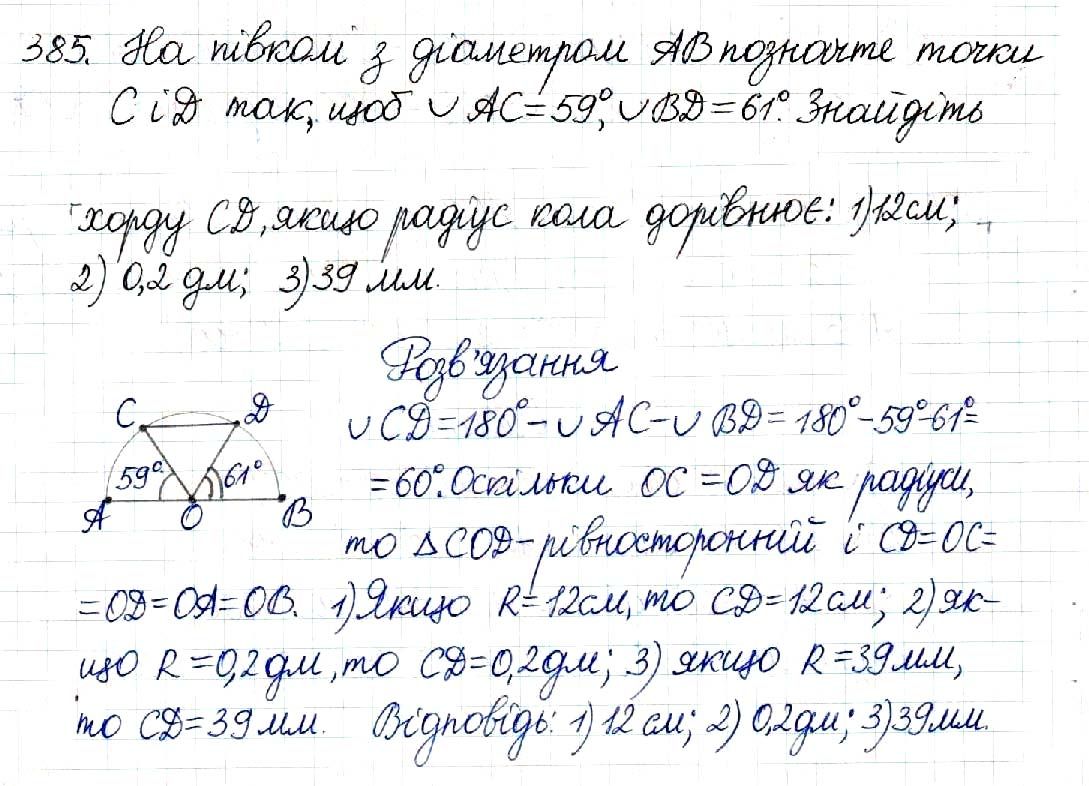 385. На півколі з діаметром AB позначте точки
C і D так, щоб ∪ AC = 59°, ∪ BD = 61°. Знайдіть
хорду CD, якщо радіус кола дорівнює: 1) 12 см;
2) 0,2 дм; 3) 39 мм.
Розв'язання
C D
59° 61°
A O B
∪ CD = 180° - ∪ AC - ∪ BD = 180° - 59° - 61° =
= 60°. Оскільки OC = OD як радіуси,
то △ COD - рівносторонній і CD = OC =
= OD = OA = OB. 1) Якщо R = 12 см, то CD = 12 см; 2) як-
що R = 0,2 дм, то CD = 0,2 дм; 3) якщо R = 39 мм,
то CD = 39 мм. Відповідь: 1) 12 см; 2) 0,2 дм; 3) 39 мм.